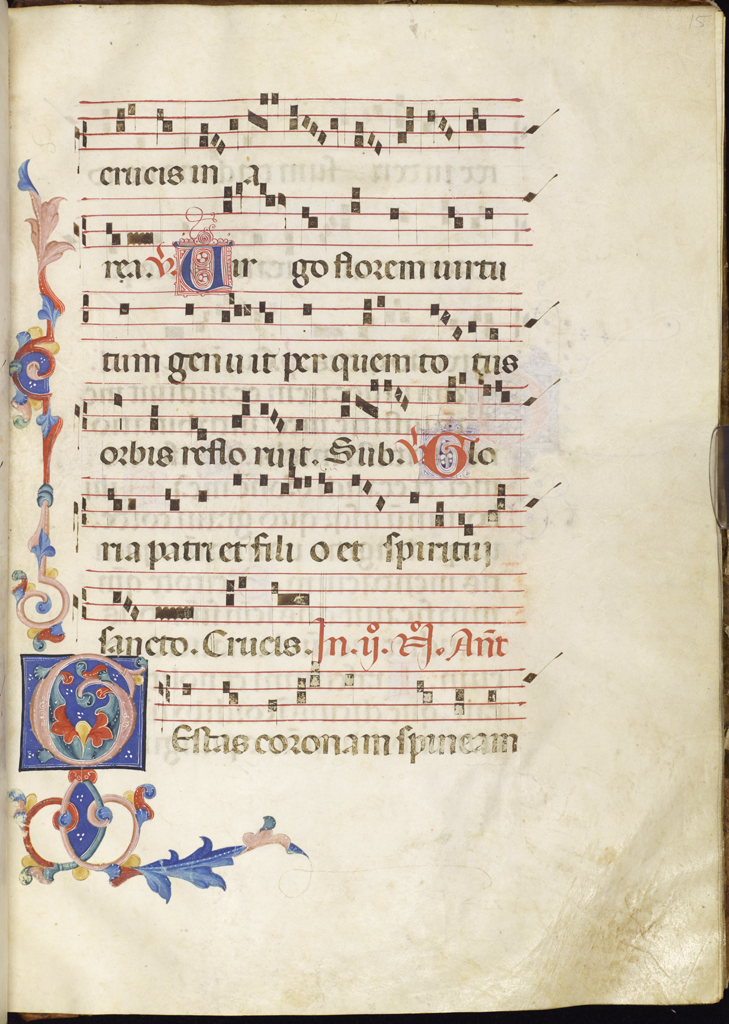 15
crucis in a
rea. V. Vir go florem uirtu
tum genuit per quem to tus
orbis reflo ruit. Sub. V. Glo
ria patri et fili o et spiritui
sancto. Crucis. In. ij. N. Ant
Gestas coronam spineam